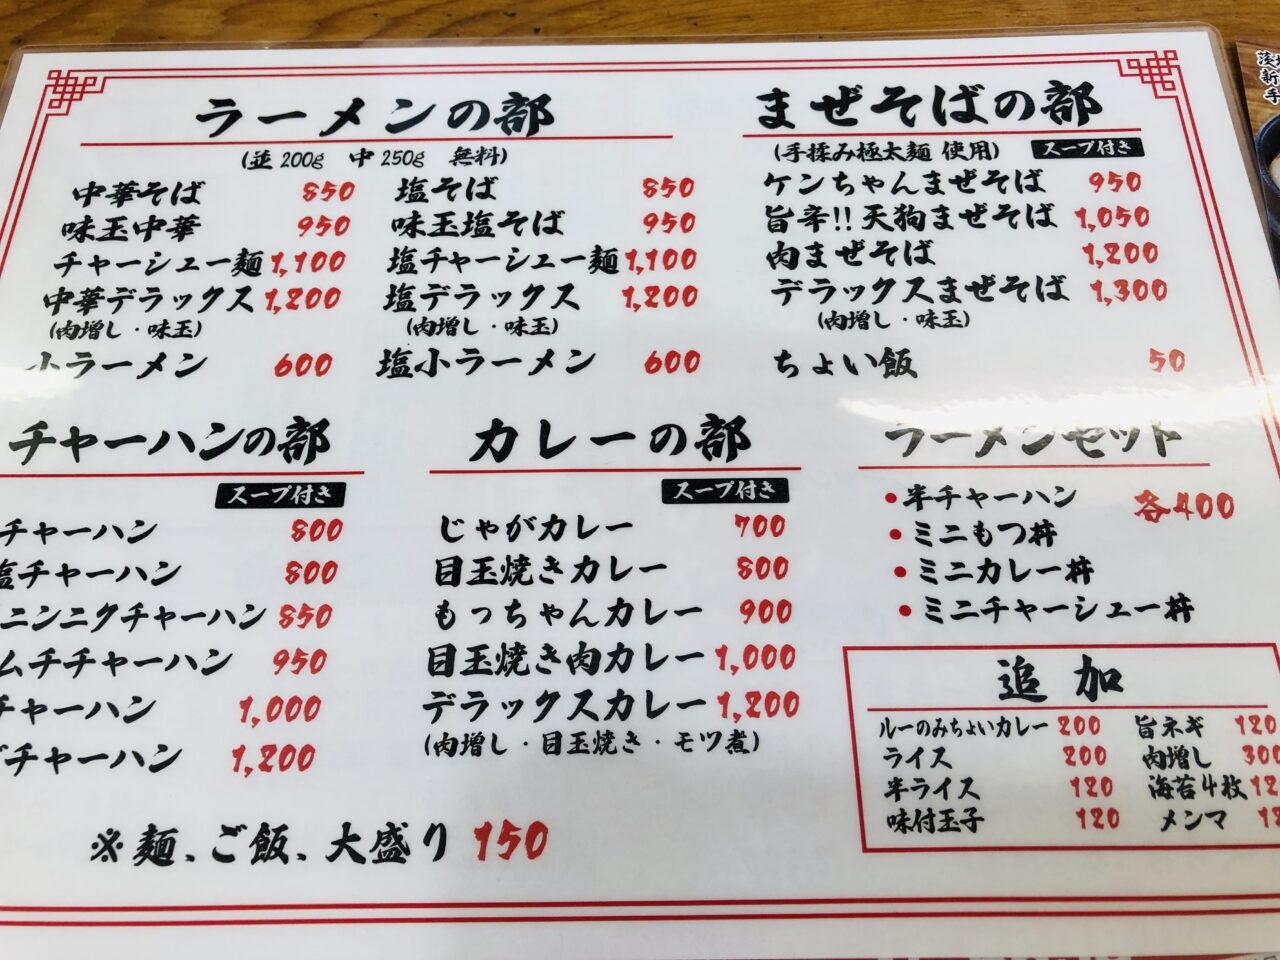 ラーメンの部
(並200g 中250g 無料)
中華そば 850
味玉中華 950
チャーシュー麺 1,100
中華デラックス 1,200
(肉増し・味玉)
小ラーメン 600
塩そば 850
味玉塩そば 950
塩チャーシュー麺 1,100
塩デラックス 1,200
(肉増し・味玉)
塩小ラーメン 600
まぜそばの部
(手揉み極太麺 使用) スープ付き
ケンちゃんまぜそば 950
旨辛!!天狗まぜそば 1,050
肉まぜそば 1,200
デラックスまぜそば 1,300
(肉増し・味玉)
ちょい飯 50
チャーハンの部
スープ付き
チャーハン 800
塩チャーハン 800
ニンニクチャーハン 850
ムチチャーハン 950
チャーハン 1,000
チャーハン 1,200
カレーの部
スープ付き
じゃがカレー 700
目玉焼きカレー 800
もっちゃんカレー 900
目玉焼き肉カレー 1,000
デラックスカレー 1,200
(肉増し・目玉焼き・モツ煮)
ラーメンセット
•半チャーハン 各400
•ミニもつ丼
•ミニカレー丼
•ミニチャーシュー丼
追加
ルーのみちょいカレー 200
ライス 200
半ライス 120
味付玉子 120
旨ネギ 120
肉増し 300
海苔4枚 12
メンマ
※麺、ご飯、大盛り 150